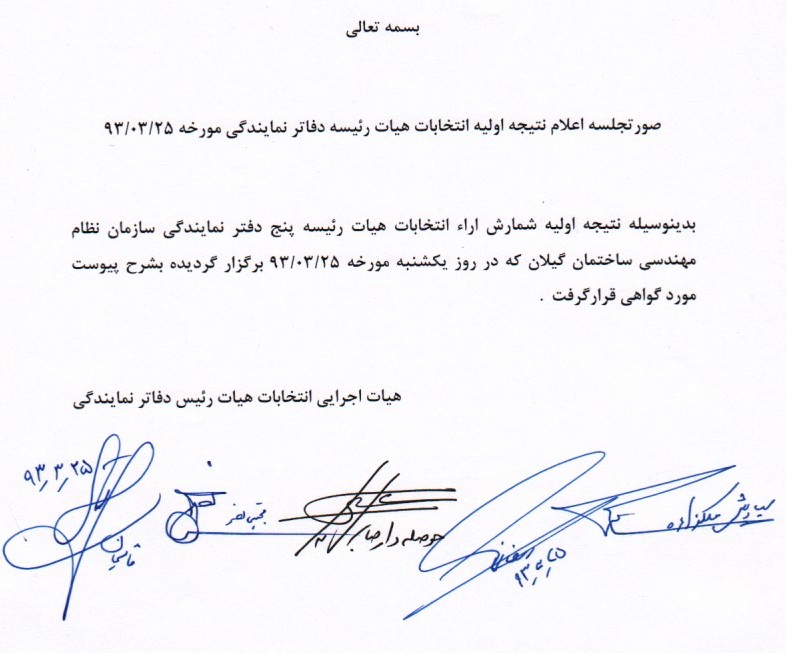 بسمه تعالی
صورتجلسه اعلام نتیجه اولیه انتخابات هیات رئیسه دفاتر نمایندگی مورخه ۹۳/۰۳/۲۵
بدینوسیله نتیجه اولیه شمارش اراء انتخابات هیات رئیسه پنج دفتر نمایندگی سازمان نظام
مهندسی ساختمان گیلان که در روز یکشنبه مورخه ۹۳/۰۳/۲۵ برگزار گردیده بشرح پیوست
مورد گواهی قرارگرفت .
هیات اجرایی انتخابات هیات رئیس دفاتر نمایندگی
سیاوش ملکزاده
حوصله دار صابر
مجتبی نصر
۹۳٫۳٫۲۵